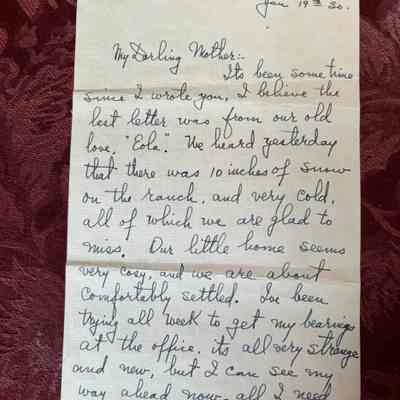 Jan 19th 30.
My Darling Mother:-
Its been some time
since I wrote you, I believe the
last letter was from our old
love, "Eola". We heard yesterday
that there was 10 inches of snow
on the ranch, and very cold,
all of which we are glad to
miss. Our little home seems
very cosy, and we are about
comfortably settled. Ive been
trying all week to get my bearings
at the office, its all very strange
and new, but I can see my
way ahead now, all I need